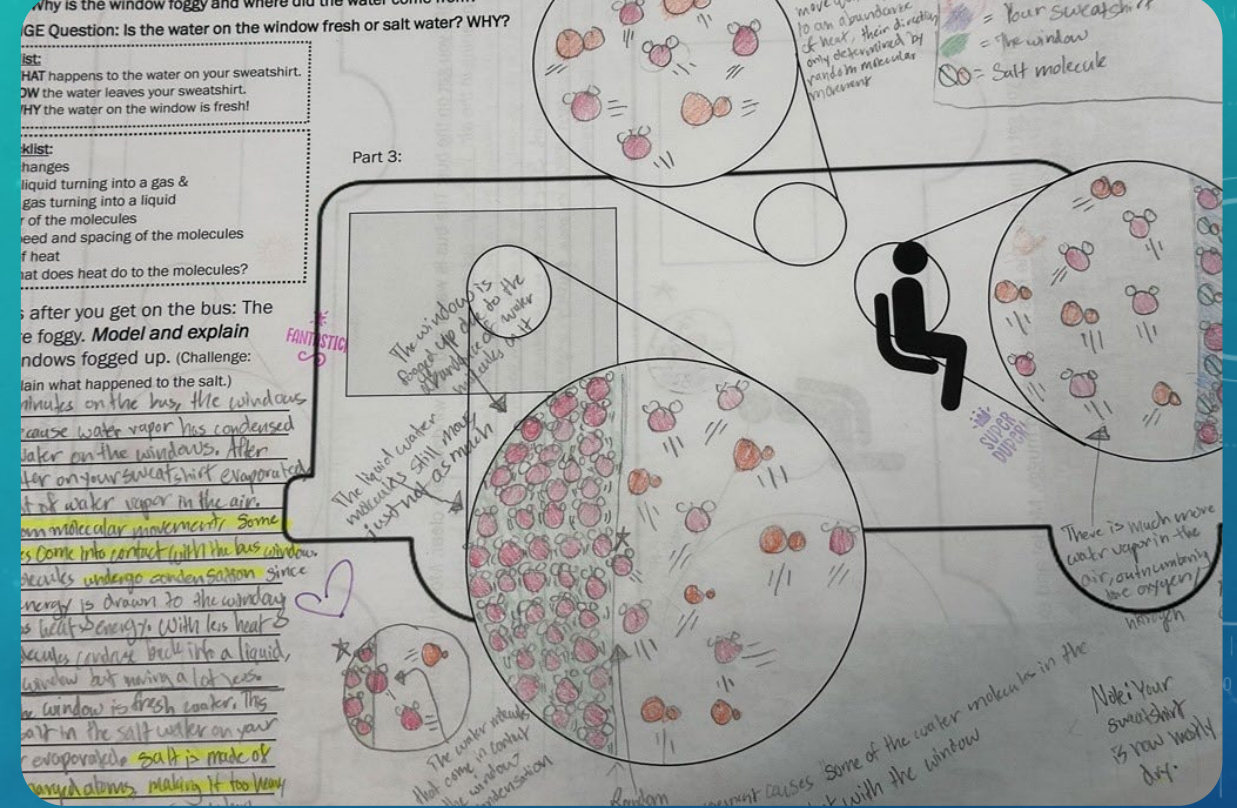 Why is the window foggy and where did the water come from
GE Question: Is the water on the window fresh or salt water? WHY?
ist:
HAT happens to the water on your sweatshirt.
OW the water leaves your sweatshirt.
HY the water on the window is fresh!
klist:
hanges
liquid turning into a gas &
gas turning into a liquid
r of the molecules
eed and spacing of the molecules
f heat
at does heat do to the molecules?
s after you get on the bus: The
e foggy. Model and explain
ndows fogged up. (Challenge:
lain what happened to the salt.)
minutes on the bus, the windows
cause water vapor has condensed
water on the windows. After
ter on your sweatshirt evaporated
t of water vapor in the air.
om molecular movement, some
s come into contact with the bus window.
lecules undergo condensation since
nergy is drawn to the window
s heat energy. With less heat &
lecules condense back into a liquid,
window but moving a lot less.
e window is fresh water. This
salt in the salt water on your
evaporated. Salt is made of
atoms, making it too heavy
Part 3:
FANTASTIC
move
to an abundance
of heat, their direction
only determined by
random molecular
movement
= Your sweatshirt
= The window
= Salt molecule
The window is
fogged up due to the
abundance of water
molecules on it
The liquid water
molecules still move
just not as much
SUPER
DUPER!
There is much more
water vapor in the
air, outnumbering
the oxygen/
nitrogen
Note: Your
sweatshirt
is now mostly
dry.
The water molecules
that come in contact
the window
condensation
Random
movement causes some of the water molecules in the
with the window